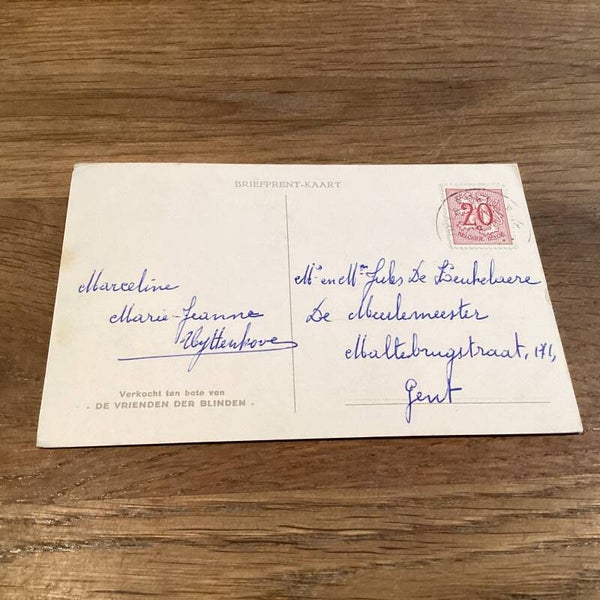 BRIEFPRENT-KAART
20
BELGIQUE BELGIE
Marceline
Marie-Jeanne
Uyttenhove
Mr en Mme Jules De Keukelaere
De Meulemeester
Maltebrugstraat, 171,
Gent
Verkocht ten bate van
. DE VRIENDEN DER BLINDEN .